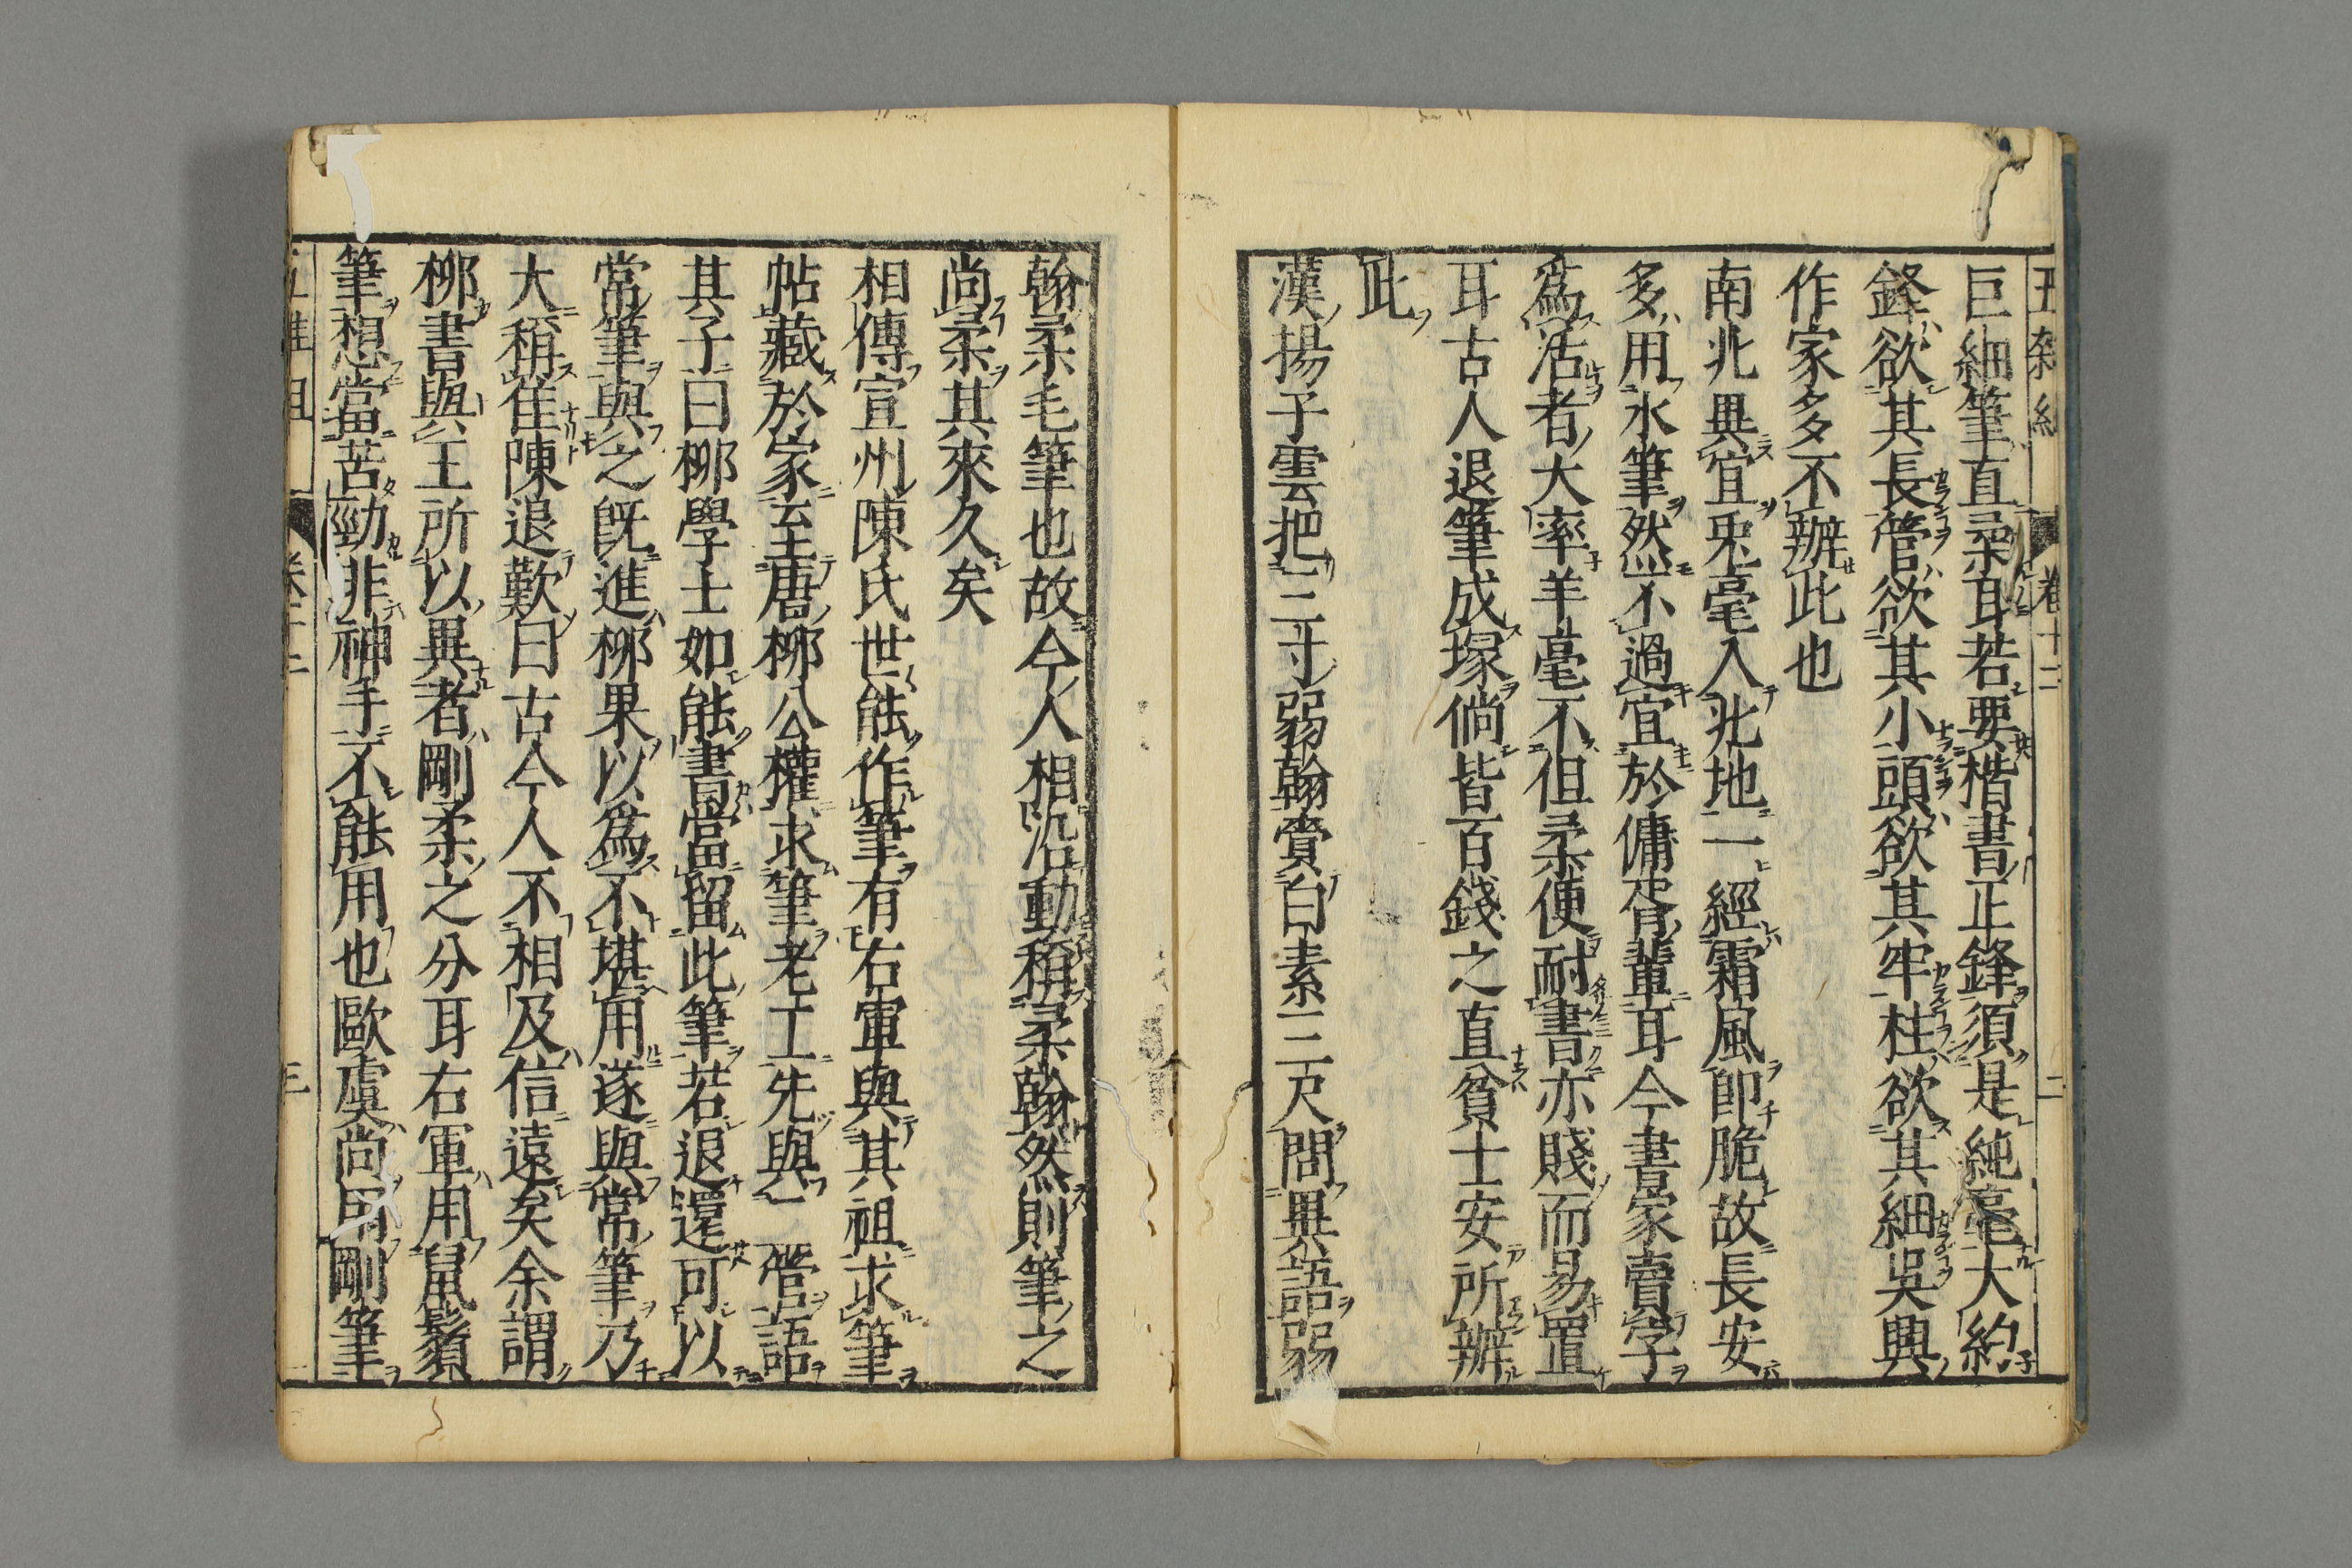 巨細筆直柔耳若要楷書正鋒須是純毫大約
鋒欲其長管欲其小頭欲其牢柱欲其細吳興
作家多不辦此也
南北異宜兎毫入北地一經霜風卽脆故長安
多用水筆然不過宜於傭胥輩耳今書家賣字
爲活者大率羊毫不但柔便耐書亦賤而易置
耳古人退筆成塜倘皆百錢之直貧士安所辦
此
漢揚子雲把三寸弱翰賫白素三尺問異語弱
翰柔毛筆也故今人相沿動稱柔翰然則筆之
尚柔其來久矣
相傳宣州陳氏世能作筆有右軍與其祖求筆
帖藏於家至唐柳公權求筆老工先與一管語
其子曰柳學士如能書當留此筆若退還可以
常筆與之旣進柳果以爲不堪用遂與常筆乃
大稱隹陳退歎曰古今人不相及信遠矣余謂
柳書與王所以異者剛柔之分耳右軍用鼠鬚
筆想當苦勁非神手不能用也歐虞尚用剛筆
卷十二
二
三